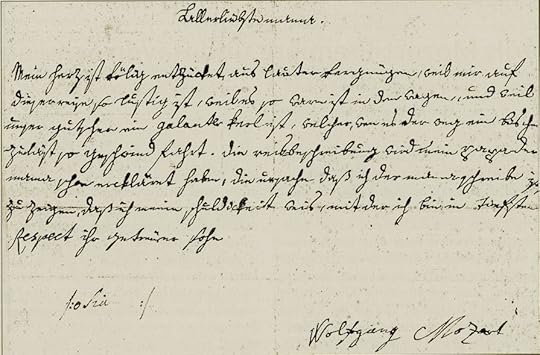 Allerliebste mama.
Mein hertz ist völig entzücket, aus lauter vergnügen, weil mir auf
dieser reise so lustig ist, weil es so warm ist in den wagen, und weil
unser gutscher ein galanter kerl ist, welcher, wen es der weg ein bischen
zuläst so geschwind fahrt. die reisbeschreibung wird mein papa der
mama schon erkläret haben, die ursache daß ich der mama schreibe ist
zu zeigen, daß ich meine schuldickeit weis, mit der ich bin in tiefsten
Respect ihr getreuer sohn
Wolfgang Mozart